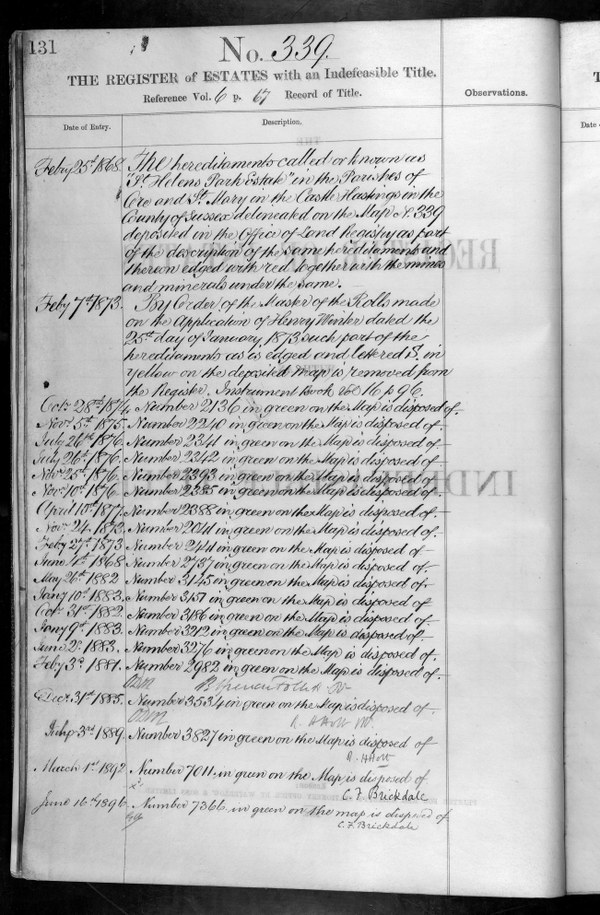 131
No. 339.
THE REGISTER of ESTATES with an Indefeasible Title.
Reference Vol. 6 p. 67 Record of Title.
Observations.
Date of Entry.
Description.
Feby 25th 1868. The hereditaments called or known as
"St. Helens Park Estate" in the Parishes of
Ore and St. Mary in the Castle Hastings in the
County of Sussex delineated on the Map No. 339
deposited in the Office of Land Registry as part
of the description of the same hereditaments and
thereon edged with red together with the mines
and minerals under the same.
Feby 7th 1873. By Order of the Master of the Rolls made
on the Application of Henry Winter dated the
25th day of January 1873 such part of the
hereditaments as is edged and lettered S. in
yellow on the deposited map is removed from
the Register. Instrument Book Vol 16 p 96.
Octr. 28th 1874. Number 2136 in green on the Map is disposed of.
Novr. 5th 1875. Number 2240 in green on the Map is disposed of.
July 26th 1876. Number 2341 in green on the Map is disposed of
July 26th 1876. Number 2342 in green on the Map is disposed of.
Novr 25th 1876. Number 2393 in green on the Map is disposed of.
Novr 10th 1876. Number 2385 in green on the Map is disposed of.
April 10th 1877. Number 2388 in green on the Map is disposed of.
Novr. 24. 1873. Number 2041 in green on the Map is disposed of.
Feby 27th 1873 Number in green on the Map is disposed of
June 4th 1868 Number in green on the Map is disposed of.
May 26th 1882 Number 3145 in green on the Map is disposed of.
Jany 10th 1883. Number 3157 in green on the Map is disposed of
Octr. 31st 1882. Number 3186 in green on the Map is disposed of.
Jany 9th 1883. Number 3212 in green on the Map is disposed of.
June 2d 1883. Number 3276 in green on the Map is disposed of.
Feby 3d 1881. Number 2982 in green on the Map is disposed of.
Decr. 31st 1885. Number 3534 in green on the Map is disposed of.
R. H Holt
July 3rd 1889. Number 3827 in green on the Map is disposed of
R. H Holt
March 1st 1892 Number 7011 in green on the Map is disposed of.
C. F. Brickdale
June 16th 1896. Number 7366 in green on the map is disposed of
C. F. Brickdale